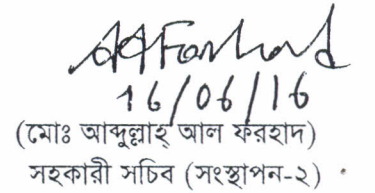 AAFarhad
16/06/16
(মোঃ আব্দুল্লাহ্ আল ফরহাদ)
সহকারী সচিব (সংস্থাপন-২)